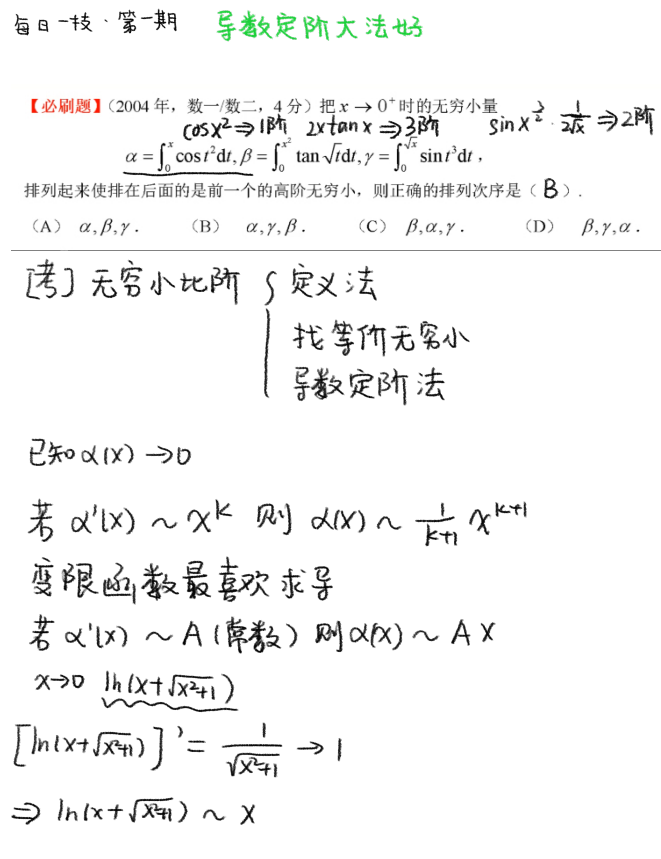 每日一技、第一期 导数定阶大法好
【必刷题】(2004 年，数一/数二，4 分)把 x → 0⁺ 时的无穷小量
cosx² ⇒ 1阶 2xtanx ⇒ 3阶 sinx^{3/2} · 1/(2√x) ⇒ 2阶
α = ∫₀^x cos t² dt, β = ∫₀^{x²} tan √t dt, γ = ∫₀^{√x} sin t³ dt ，
排列起来使排在后面的是前一个的高阶无穷小，则正确的排列次序是（ B ）.
(A) α,β,γ . (B) α,γ,β . (C) β,α,γ . (D) β,γ,α .
[考] 无穷小比阶 { 定义法
找等价无穷小
导数定阶法
已知 α(x) → 0
若 α'(x) ~ x^k 则 α(x) ~ 1/(k+1) x^{k+1}
变限函数最喜欢求导
若 α'(x) ~ A (常数) 则 α(x) ~ Ax
x→0 ln(x+√(x²+1))
[ln(x+√(x²+1))]' = 1/√(x²+1) → 1
⇒ ln(x+√(x²+1)) ~ x